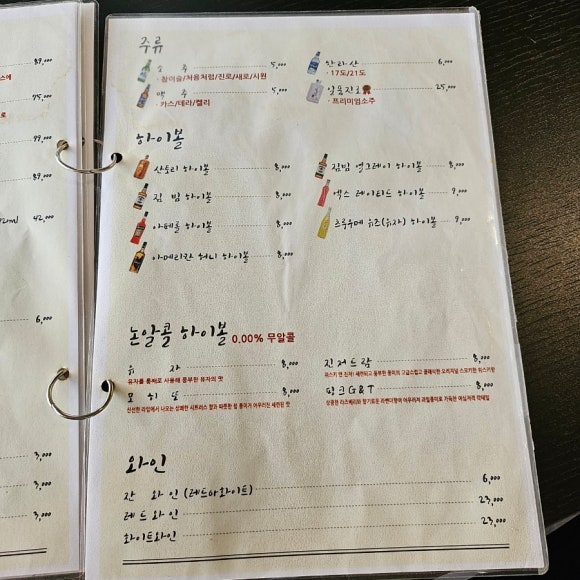 주류
소 주 5,000
· 참이슬/처음처럼/진로/새로/시원
맥 주 5,000
· 카스/테라/켈리
한라산 6,000
· 17도/21도
일품진로 25,000
· 프리미엄소주
하이볼
산토리 하이볼 8,000
짐 빔 하이볼 8,000
아페롤 하이볼 8,000
아메리칸 허니 하이볼 8,000
짐빔 얼그레이 하이볼 8,000
엑스 레이티드 하이볼 9,000
츠루우메 유즈(유자) 하이볼 9,000
논알콜 하이볼 0.00% 무알콜
유 자 8,000
유자를 통째로 사용해 풍부한 유자의 맛
모 히 또 8,000
신선한 라임에서 나오는 상쾌한 시트러스 향과 따뜻한 럼 풍미가 어우러진 세련된 맛
진저드람 8,000
위스키 앤 진저! 세련되고 풍부한 풍미의 고급스럽고 클래식한 오리지널 스모키한 위스키향
핑크G&T 8,000
상큼한 라즈베리와 향기로운 라벤더향이 어우러져 과일풍미로 가득한 이십게적 칵테일
와인
잔 와인 (레드아화이트) 6,000
레드와인 23,000
화이트와인 23,000
89,000
75,000
99,000
89,000
42,000
6,000
3,000
3,000
3,000